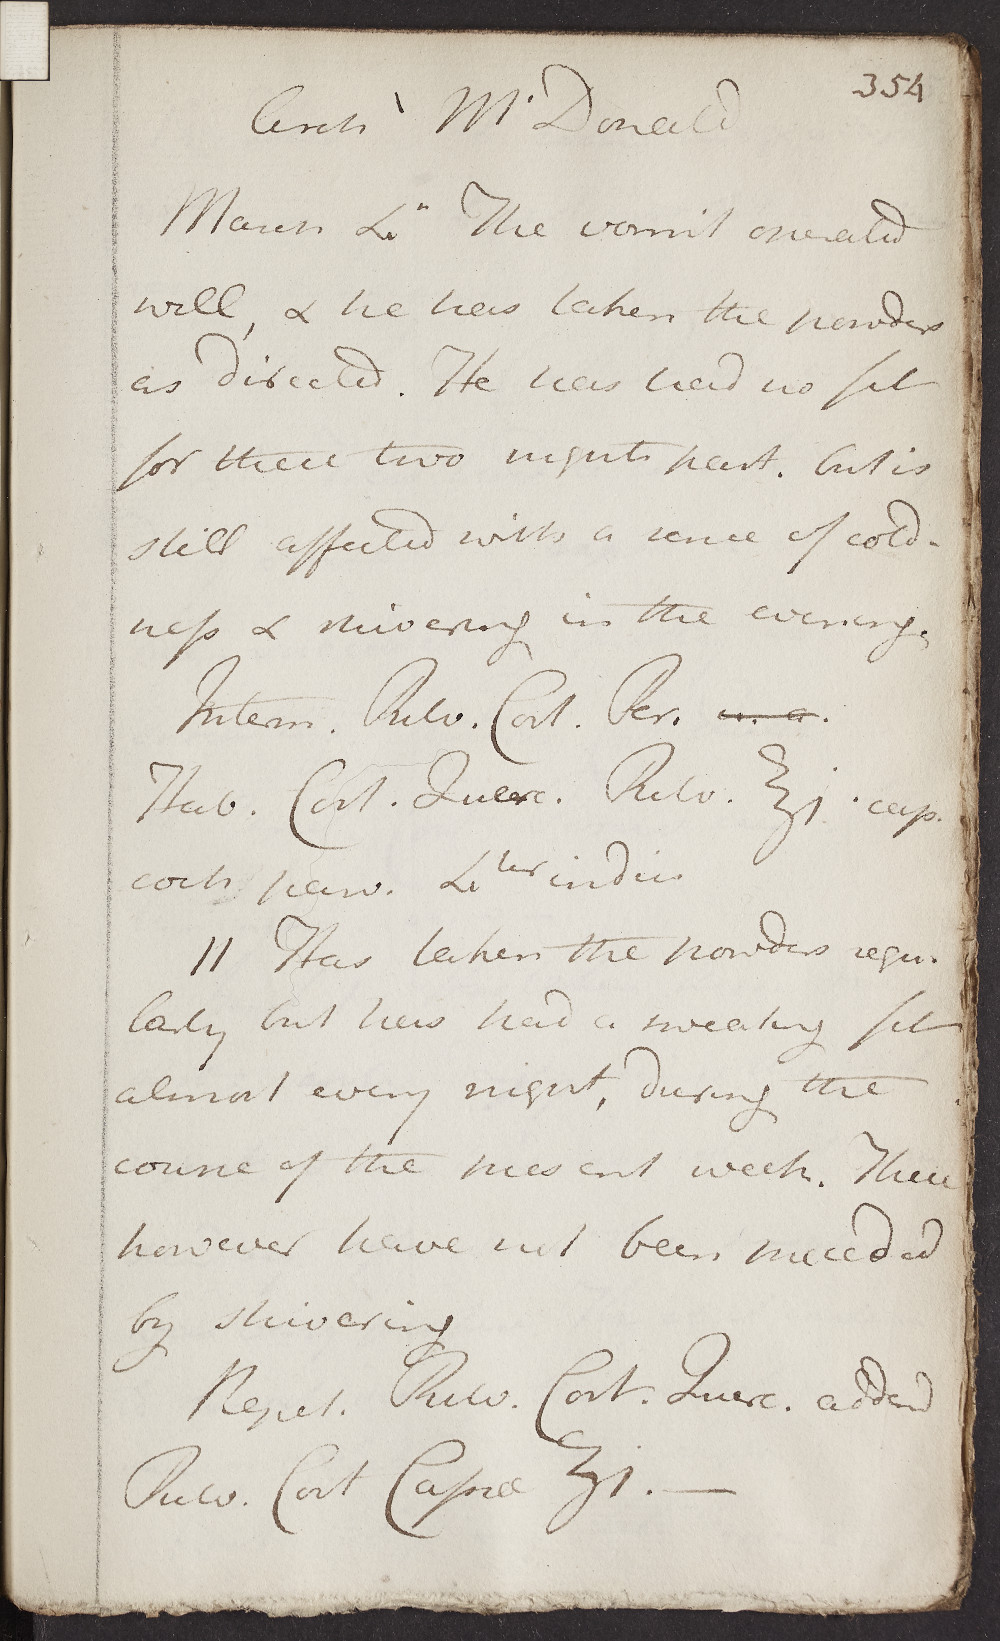 354
Arch.d McDonald
March 4th The vomit operated
well, & he has taken the powders
as directed. He has had no fit
for these two nights past. but is
still affected with a sense of cold-
ness & shivering in the evening.
Interm. Pulv. Cort. Per. u. a.
Hab. Cort. Querc. Pulv. ℥j. cap.
coch parv. 4ter indies
11 Has taken the powders regu-
larly but has had a sweating fit
almost every night, during the
course of the present week. These
however have not been preceded
by shivering
Repet. Pulv. Cort. Querc. addend
Pulv. Cort Cassiæ ℥j. —